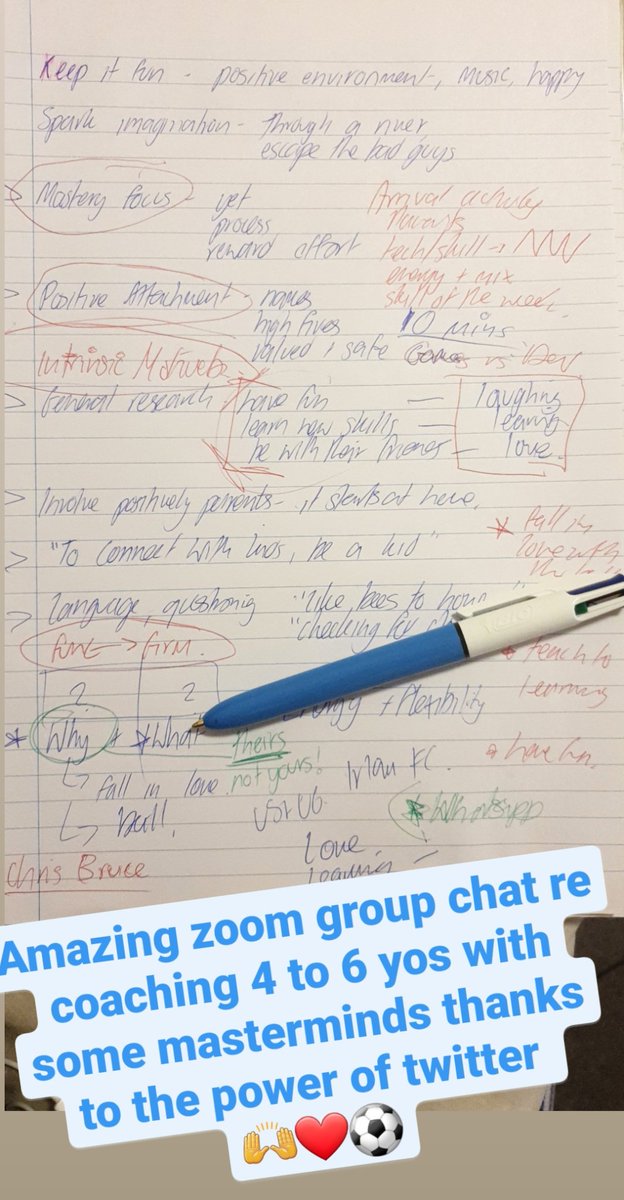 Keep it fun - positive environment, music, happy
Spark imagination - through a river,
escape the bad guys
> Mastery focus - yet
process
reward effort
Arrival activity
Parents
tech/skill →
energy + mix
skill of the week
> Positive Attachment - names
high fives
valued + safe
10 mins
vs Dev
Intrinsic
> General research
have fun — laughing
learn new skills — learning
be with their friends — love
> Involve positively parents - it starts at home.
> "To connect with kids, be a kid"
> language, questioning "like bees to
"checking for
* fall in
love with
fun → firm.
2 2
* Why + * What
theirs
not yours!
+ flexibility
teach to
learning
* have fun.
↳ fall in love
↳ Ball.
FC.
* Whatsapp
Love
Learning
Chris Bruce
Amazing zoom group chat re
coaching 4 to 6 yos with
some masterminds thanks
to the power of twitter
🙌❤️⚽